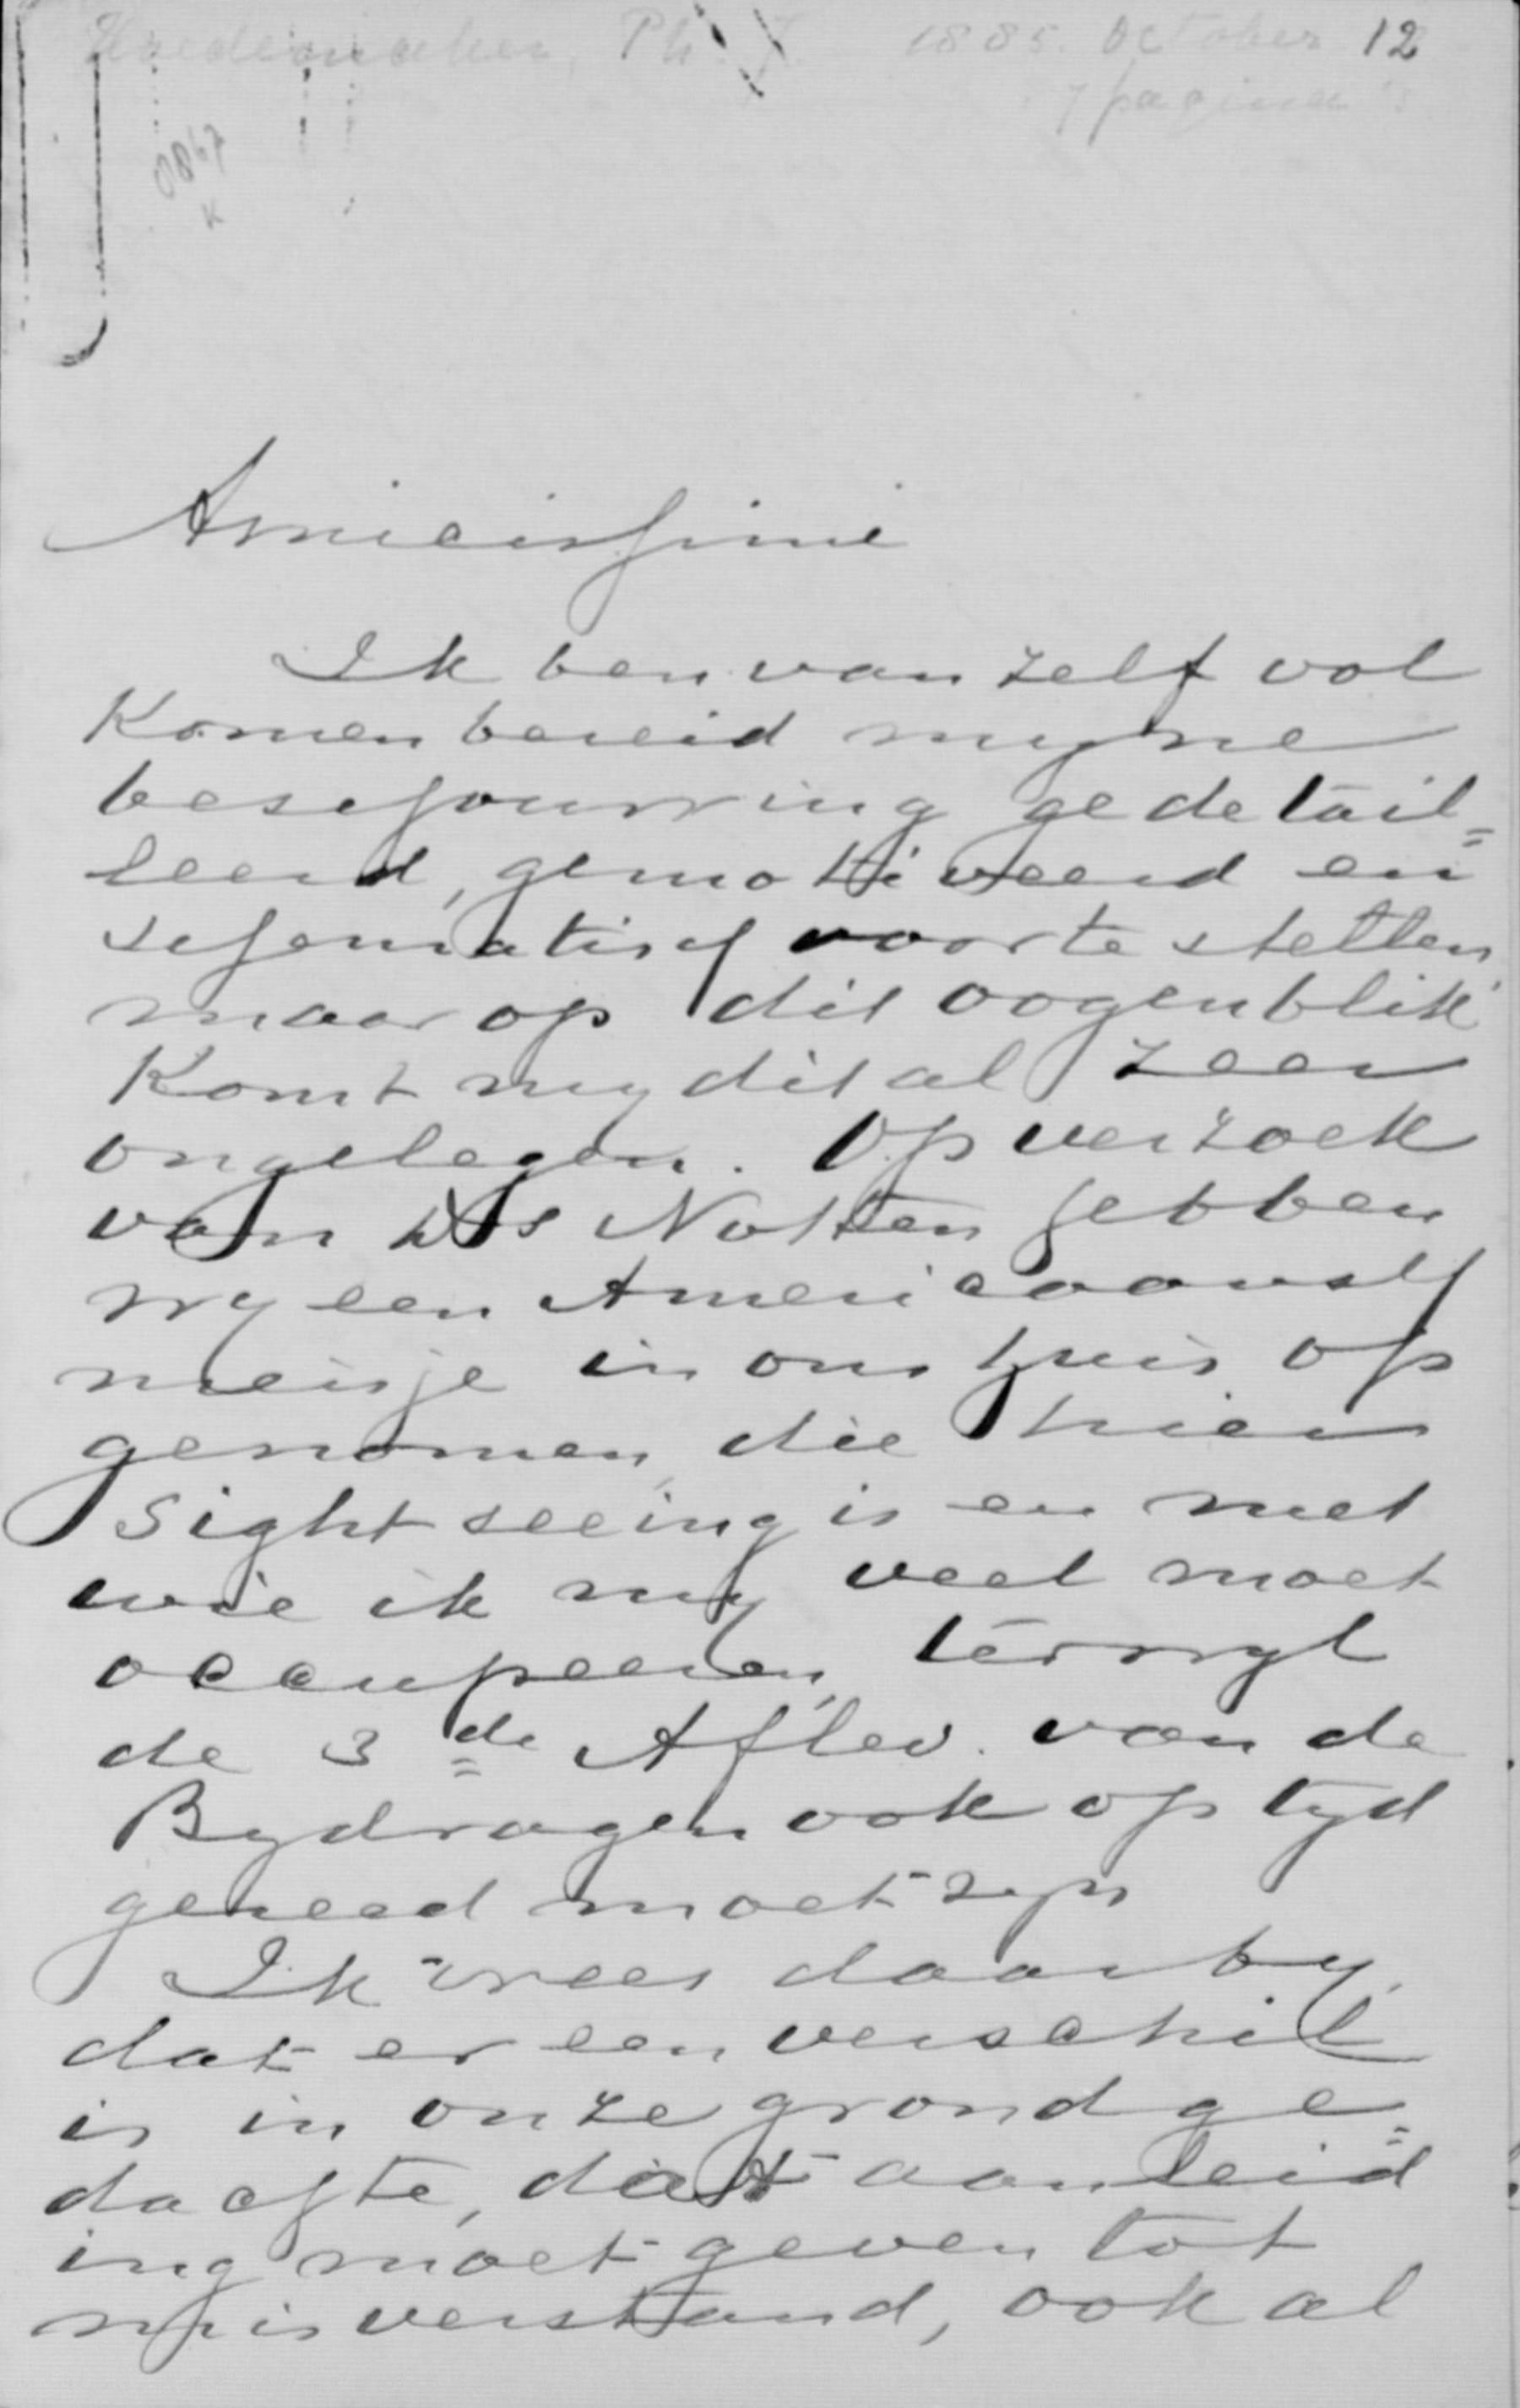 Hoedemaker, Ph. J. 1885. October 12
7 pagina's
0867
K
Amicissime
Ik ben van zelf vol
komen bereid myne
beschouwing gedetail=
leerd, gemotiveerd en
schematisch voor te stellen
maar op dit oogenblik
komt my dit al zeer
ongelegen. Op verzoek
van Ds Nolten hebben
wy een Americaansch
meisje in ons huis op
genomen, die hier
sight seeing is en met
wie ik my veel moet
occupeeren, terwyl
de 3de Aflev. van de
Bydragen ook op tyd
gereed moet zyn
Ik vrees daarby,
dat er een verschil
is in onze grondge=
dachte, dat aanleid
ing moet geven tot
misverstand, ook al